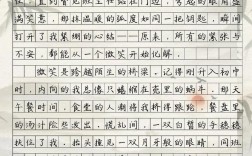 窝笑意，那抹温暖的弧度如同一把钥匙，瞬间
打开了我紧绷的心结——原来，所有的紧张与
不安，都能从一个微笑开始化解。
微笑是跨越陌生的桥梁。记得刚升入初中
时，内向的我总像只蜷缩在壳里的蜗牛。那天
午餐时间，食堂的人潮将我挤得踉跄，餐盘里
的汤汁险些泼出。慌乱间，一双白皙的手稳稳
扶住了我，抬头撞见一双月牙般的眼睛。